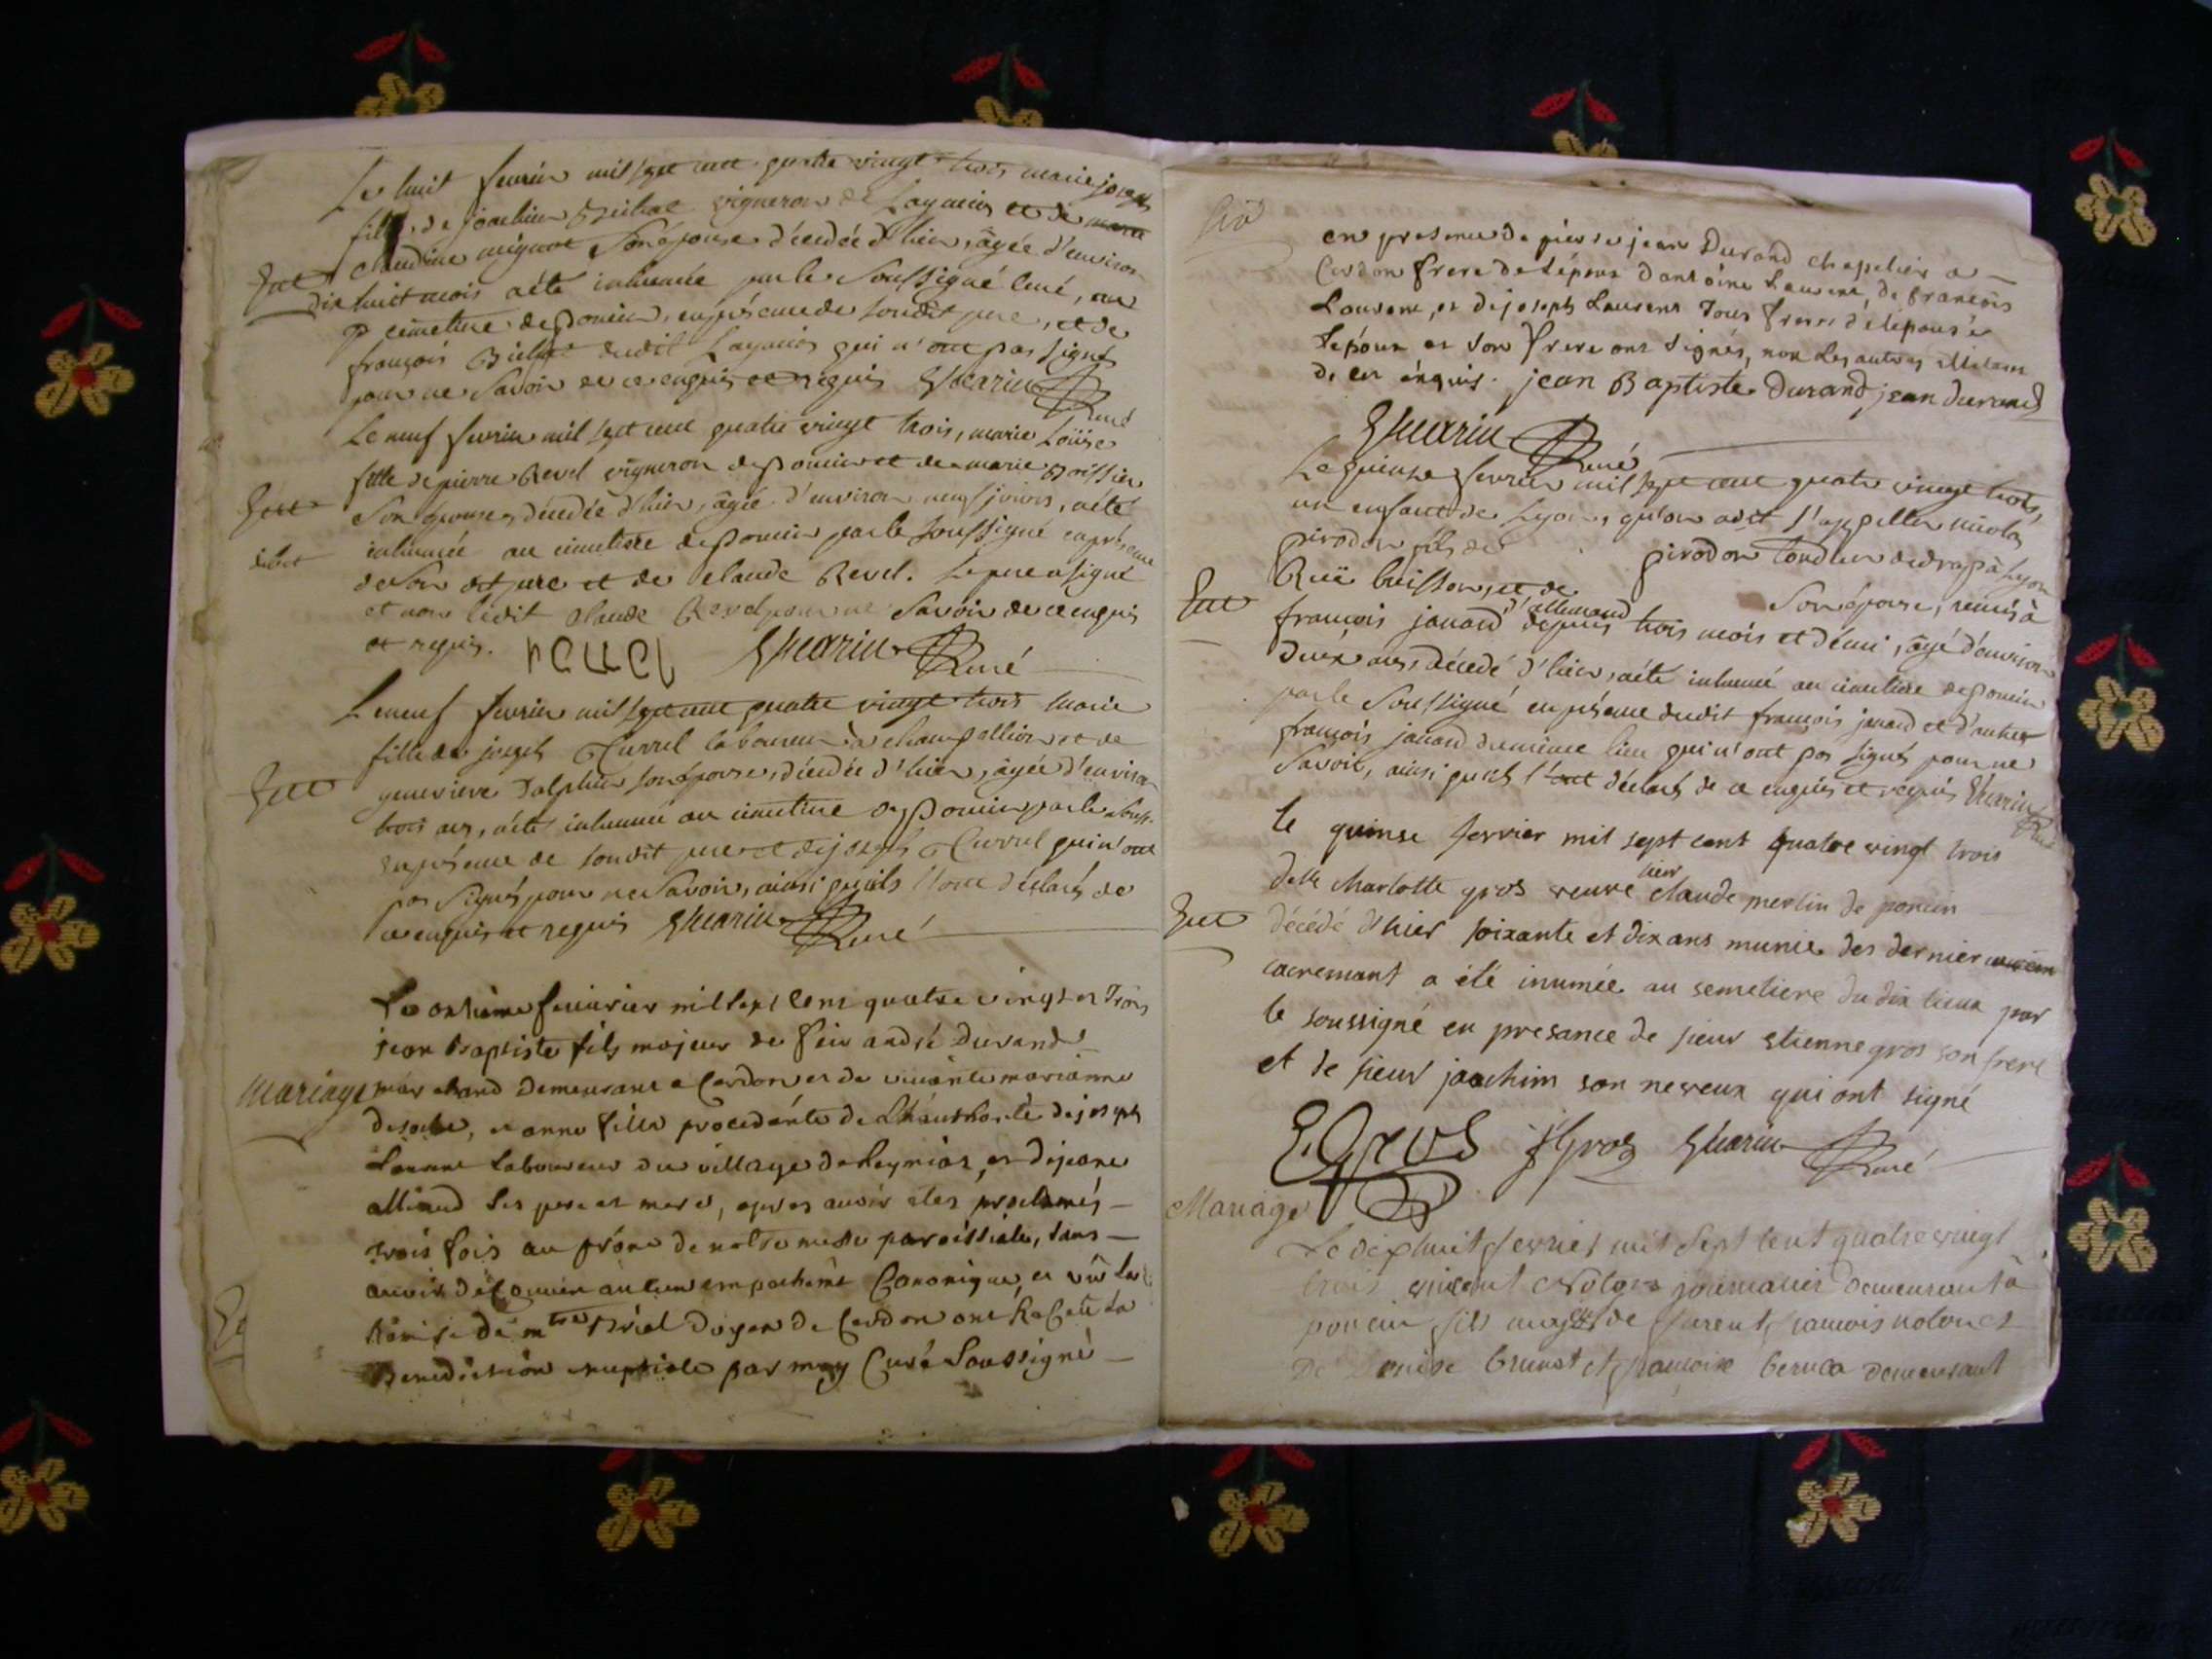 Le huit fevrier mil sept cent quatre vingt trois marie joseph
fille de joachim Bichat vigneron de Leymiat et de marie
claudine mignot son épouse, décédée d'hier, âgée d'environ
Ent dix huit mois a été inhumée par le soussigné curé, au
cimetiere de poncin, en présence de sondit pere, et de
françois Bichat dudit Leymiat qui n'ont pas signé
pour ne savoir de ce enquis et requis Guarin
Curé
Le neuf fevrier mil sept cent quatre vingt trois, marie Loüise
fille de pierre Revel vigneron de poncin et de marie Boissieu
Ent son épouse, décédée d'hier, âgée d'environ neuf jours, a été
inhumée au cimetiere de poncin par le soussigné en présence
de son dit pere et de claude Revel. Le pere a signé
et non ledit claude Revel pour ne savoir de ce enquis
et requis. revel Guarin Curé
Le neuf fevrier mil sept cent quatre vingt trois marie
fille de joseph Curvel laboureur à champollion et de
Ent genevieve Dalphin son épouse, décédée d'hier, âgée d'environ
trois ans, a été inhumée au cimetiere de poncin par le souss.
en présence de sondit pere et de joseph Curvel qui n'ont
pas signés pour ne savoir, ainsi qu'ils l'ont déclaré de
ce enquis et requis Guarin Curé
Le onzieme feuvrier mil sept cent quatre vingt et Trois
jean Baptiste fils majeur de feu andré Durand
Mariage marchand demeurant a Cerdon et de vivante marianne
et anne fille procedante de L'hauthorité de joseph
Laurent Laboureur du village de Leymiat, et de jeane
allimand ses pere et mere, apres avoir etes proclamés
trois fois au prône de notre messe paroissiale, sans
avoir decouvert aucun empechemt Canonique, et vû la
Rémise de mtre Briel doyen de Cerdon ont Recette La
Benediction nuptiale par moy Curé soussigné
en presence de pierre jean Durand chapelier a
Cerdon frere de l'époux d'antoine Laurent, de francois
Laurent, et de joseph Laurent Tous freres de l'épousée
L'epoux et son frere ont signés, non les autres
de ce énquis. jean Baptiste Durand jean durand
Guarin Curé
Le quinze fevrier mil sept cent quatre vingt trois,
un enfant de Lyon, qu'on a dit s'appeller nicolas
pirodon fils de pirodon tondeur de drap à Lyon
Rüe buisson, et de son épouse, remis à
Ent françois janand d'allemand depuis trois mois et demi, âgé d'environ
deux ans, décédé d'hier, a été inhumé au cimetiere de poncin
par le soussigné en présence dudit françois janand et d'autre
françois janand du même lieu qui n'ont pas signés pour ne
savoir, ainsi qu'ils l'ont déclaré de ce enquis et requis Guarin
Curé
le quinse fevrier mil sept cent quatre vingt trois
delle charlotte gros veuve sieur claude merlin de poncin
Ent décédé d'hier soixante et dix ans munie des dernier
cacremant a été inumée au semetiere du dix lieux par
le soussigné en presance de sieur etienne gros son frere
et de sieur joachim son neveux qui ont signé
E. Gros J Gros Guarin Curé
Mariage
Le dixhuit fevrier mil sept cent quatre vingt
trois vincent journalier demeurant à
poncin fils majeur de françois et
De Denise brunet et françoise demeurant